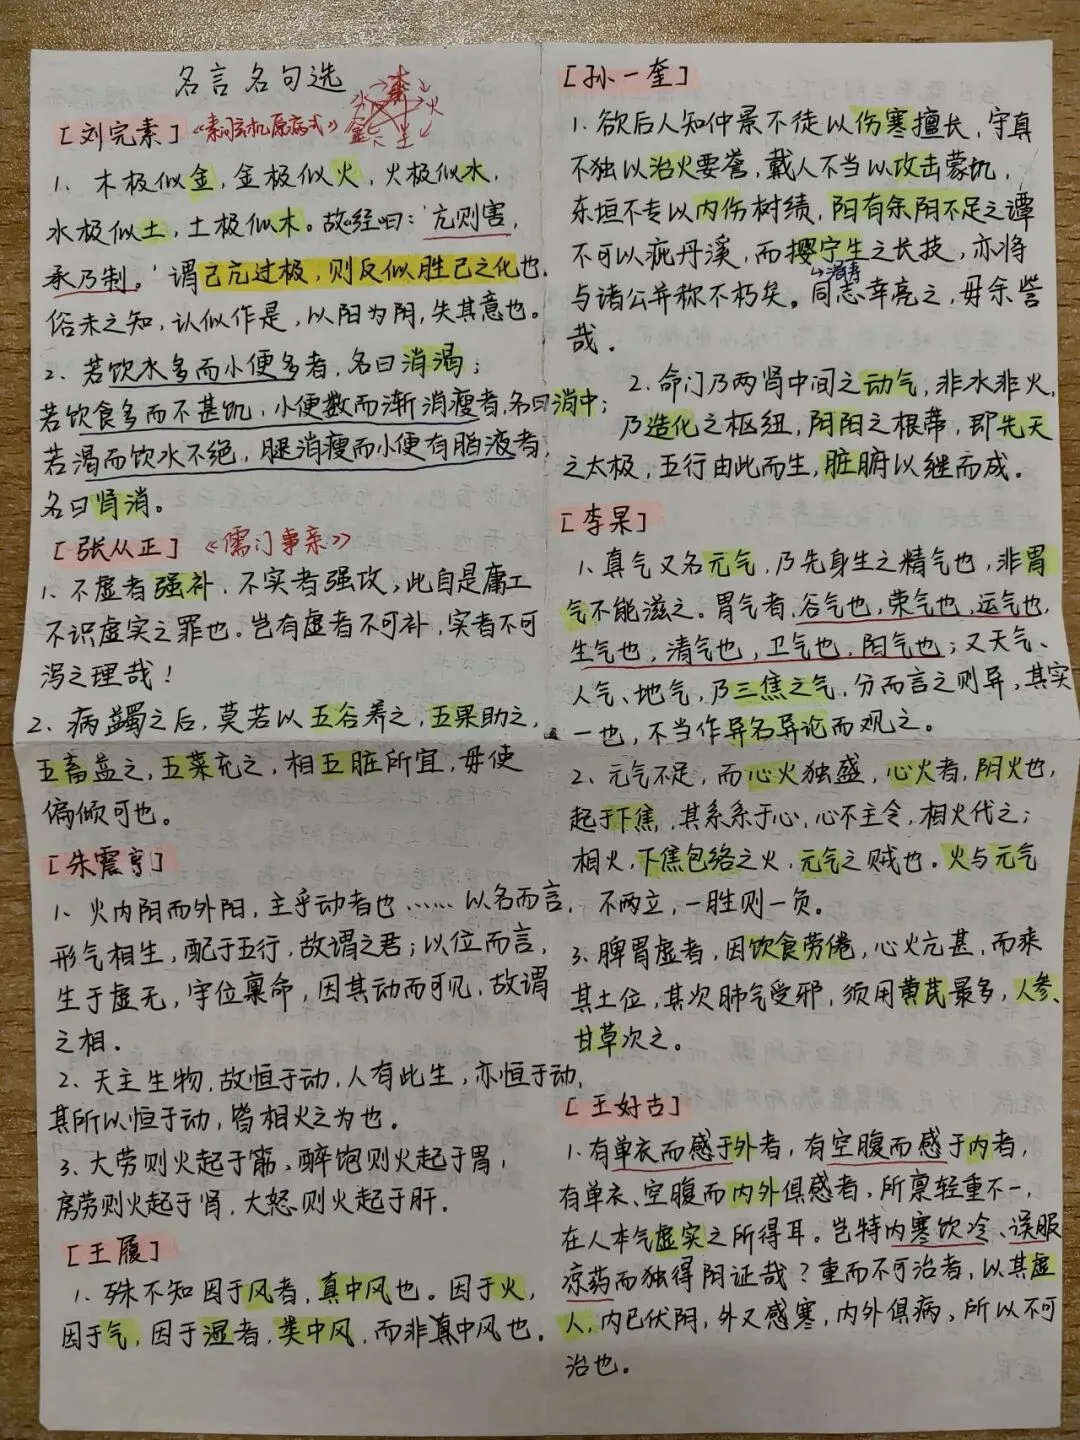 名言名句选
[刘完素]《素问玄机原病式》
木
水 火
金 土
1、木极似金,金极似火,火极似水,
水极似土,土极似木。故经曰:'亢则害,
承乃制。'谓己亢过极,则反似胜己之化也。
俗未之知,认似作是,以阳为阴,失其意也。
2、若饮水多而小便多者,名曰消渴;
若饮食多而不甚饥,小便数而渐消瘦者,名曰消中;
若渴而饮水不绝,腿消瘦而小便有脂液者,
名曰肾消。
[张从正]《儒门事亲》
1、不虚者强补、不实者强攻,此自是庸工
不识虚实之罪也。岂有虚者不可补,实者不可
泻之理哉!
2、病蠲之后,莫若以五谷养之,五果助之,
五畜益之,五菜充之,相五脏所宜,毋使
偏倾可也。
[朱震亨]
1、火内阴而外阳,主乎动者也……以名而言,
形气相生,配于五行,故谓之君;以位而言,
生于虚无,守位禀命,因其动而可见,故谓
之相。
2、天主生物,故恒于动,人有此生,亦恒于动,
其所以恒于动,皆相火之为也。
3、大劳则火起于筋,醉饱则火起于胃,
房劳则火起于肾,大怒则火起于肝.
[王履]
1、殊不知因于风者,真中风也。因于火,
因于气,因于湿者,类中风,而非真中风也。
[孙一奎]
1、欲后人知仲景不徒以伤寒擅长,守真
不独以治火要誉,戴人不当以攻击蒙讥,
东垣不专以内伤树绩,阳有余阴不足之谭
不可以疵丹溪,而撄宁生之长技,亦将
↳滑寿
与诸公并称不朽矣。同志幸亮之,毋余訾
哉.
2、命门乃两肾中间之动气,非水非火,
乃造化之枢纽,阴阳之根蒂,即先天
之太极,五行由此而生,脏腑以继而成。
[李杲]
1、真气又名元气,乃先身生之精气也,非胃
气不能滋之。胃气者,谷气也,荣气也,运气也,
生气也,清气也,卫气也,阳气也;又天气、
人气、地气,乃三焦之气,分而言之则异,其实
一也,不当作异名异论而观之。
2、元气不足,而心火独盛,心火者,阴火也,
起于下焦,其系系于心,心不主令,相火代之;
相火,下焦包络之火,元气之贼也。火与元气
不两立,一胜则一负。
3、脾胃虚者,因饮食劳倦,心火亢甚,而乘
其土位,其次肺气受邪,须用黄芪最多,人参、
甘草次之。
[王好古]
1、有单衣而感于外者,有空腹而感于内者,
有单衣、空腹而内外俱感者,所禀轻重不一,
在人本气虚实之所得耳。岂特内寒饮冷、误服
凉药而独得阴证哉?重而不可治者,以其虚
人,内已伏阴,外又感寒,内外俱病,所以不可
治也。